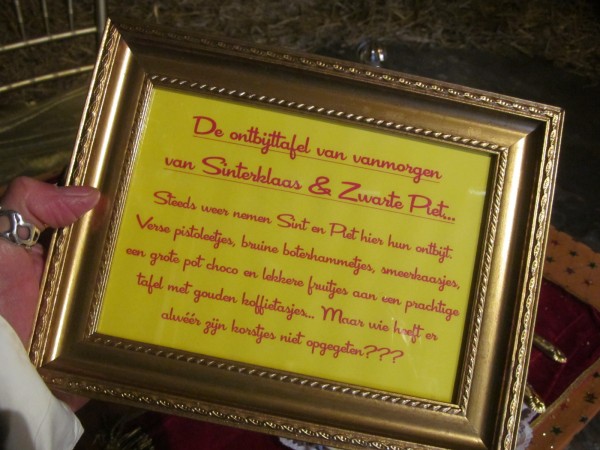 De ontbijttafel van vanmorgen
van Sinterklaas & Zwarte Piet...
Steeds weer nemen Sint en Piet hier hun ontbijt.
Verse pistoleetjes, bruine boterhammetjes, smeerkaasjes,
een grote pot choco en lekkere fruitjes aan een prachtige
tafel met gouden koffietasjes... Maar wie heeft er
alwéér zijn korstjes niet opgegeten???